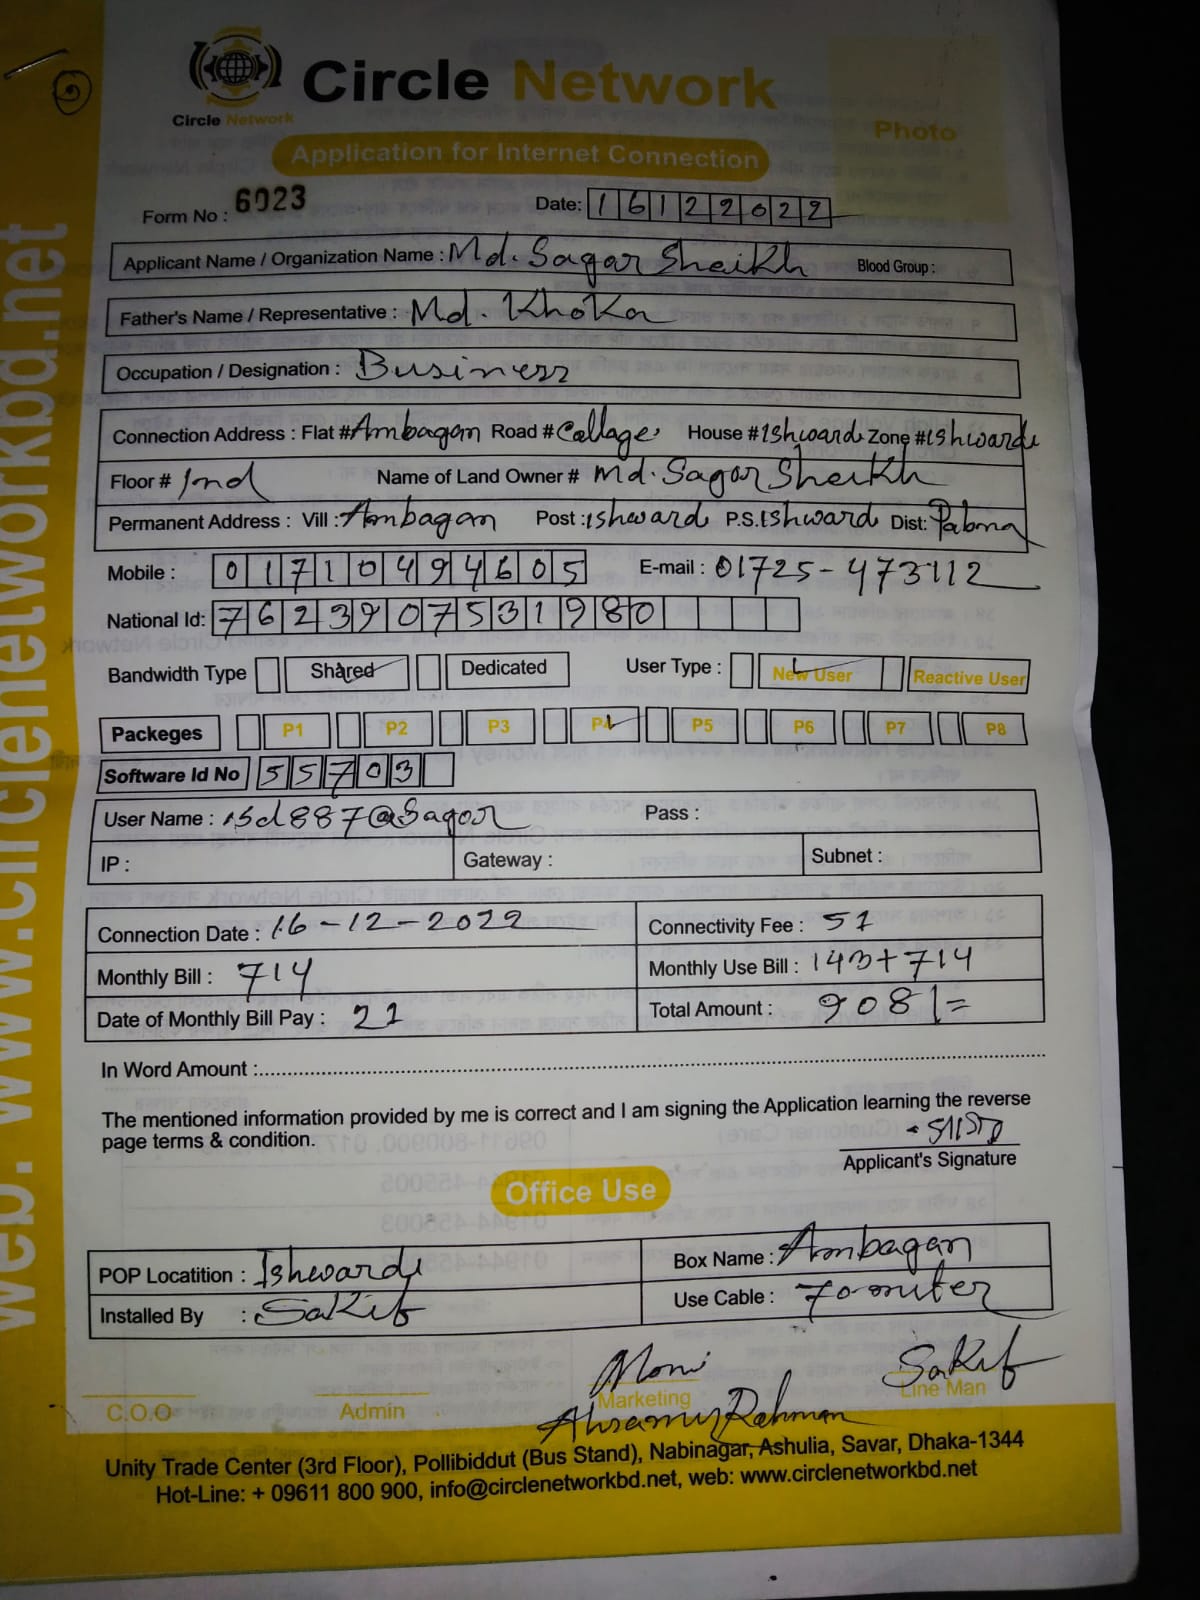 Circle Network
Circle Network
Photo
Application for Internet Connection
Form No : 6023
Date: 16122022
Applicant Name / Organization Name : Md. Sagar Sheikh Blood Group :
Father's Name / Representative : Md. Khoka
Occupation / Designation : Business
Connection Address : Flat # Ambagan Road # Collage House # Ishwardi Zone # Ishwardi
Floor # 1nd Name of Land Owner # Md. Sagar Sheikh
Permanent Address : Vill : Ambagan Post : ishwardi P.S. Ishwardi Dist: Pabna
Mobile : 01710494605 E-mail : 01725-473112
National Id: 7623907531980
Bandwidth Type Shared Dedicated User Type : New User Reactive User
Packeges P1 P2 P3 P4 P5 P6 P7 P8
Software Id No 55703
User Name : isd887@Sagor Pass :
IP : Gateway : Subnet :
Connection Date : 16-12-2022 Connectivity Fee : 51
Monthly Bill : 714 Monthly Use Bill : 143+714
Date of Monthly Bill Pay : 21 Total Amount : 908/=
In Word Amount :
The mentioned information provided by me is correct and I am signing the Application learning the reverse
page terms & condition.
Applicant's Signature
Office Use
POP Locatition : Ishwardi Box Name : Ambagan
Installed By : Sakib Use Cable : 70-miter
Moni Sakib
C.O.O Admin Marketing Line Man
Rahman
Unity Trade Center (3rd Floor), Pollibiddut (Bus Stand), Nabinagar, Ashulia, Savar, Dhaka-1344
Hot-Line: + 09611 800 900, info@circlenetworkbd.net, web: www.circlenetworkbd.net
web: www.circlenetworkbd.net